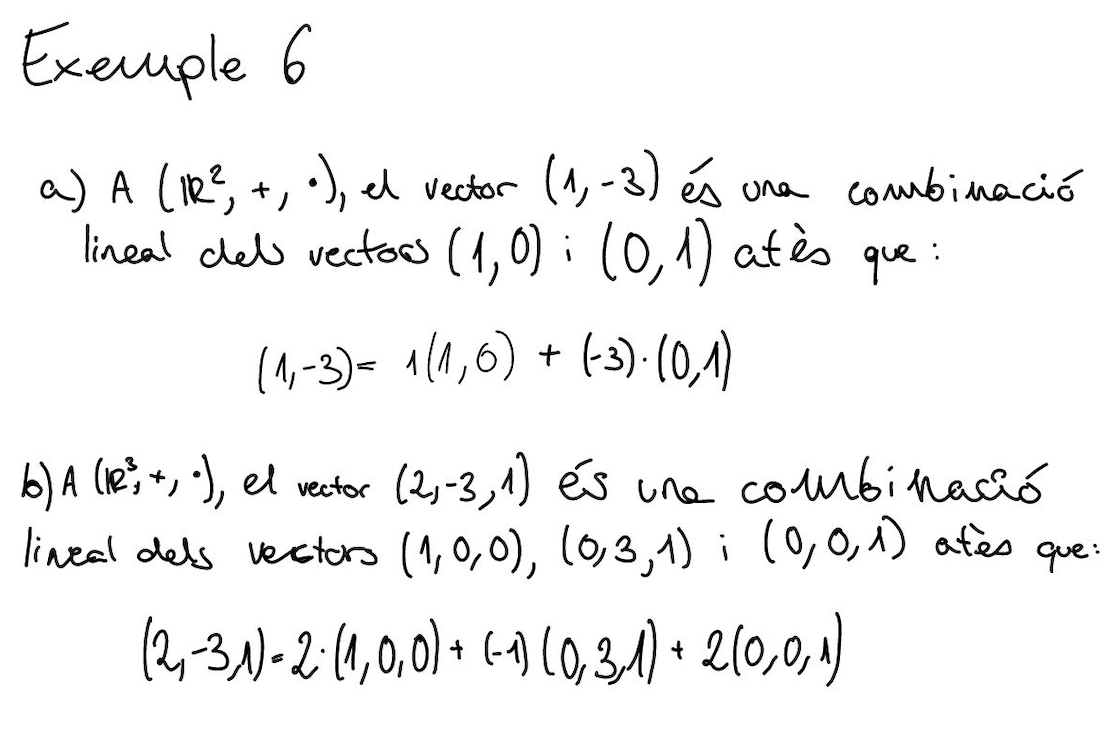 Exemple 6
a) A (ℝ², +, ·), el vector (1,-3) és una combinació
lineal dels vectors (1,0) i (0,1) atès que:
(1,-3)= 1(1,0) + (-3)·(0,1)
b) A (ℝ³, +, ·), el vector (2,-3,1) és una combinació
lineal dels vectors (1,0,0), (0,3,1) i (0,0,1) atès que:
(2,-3,1)=2·(1,0,0)+ (-1)(0,3,1)+ 2(0,0,1)